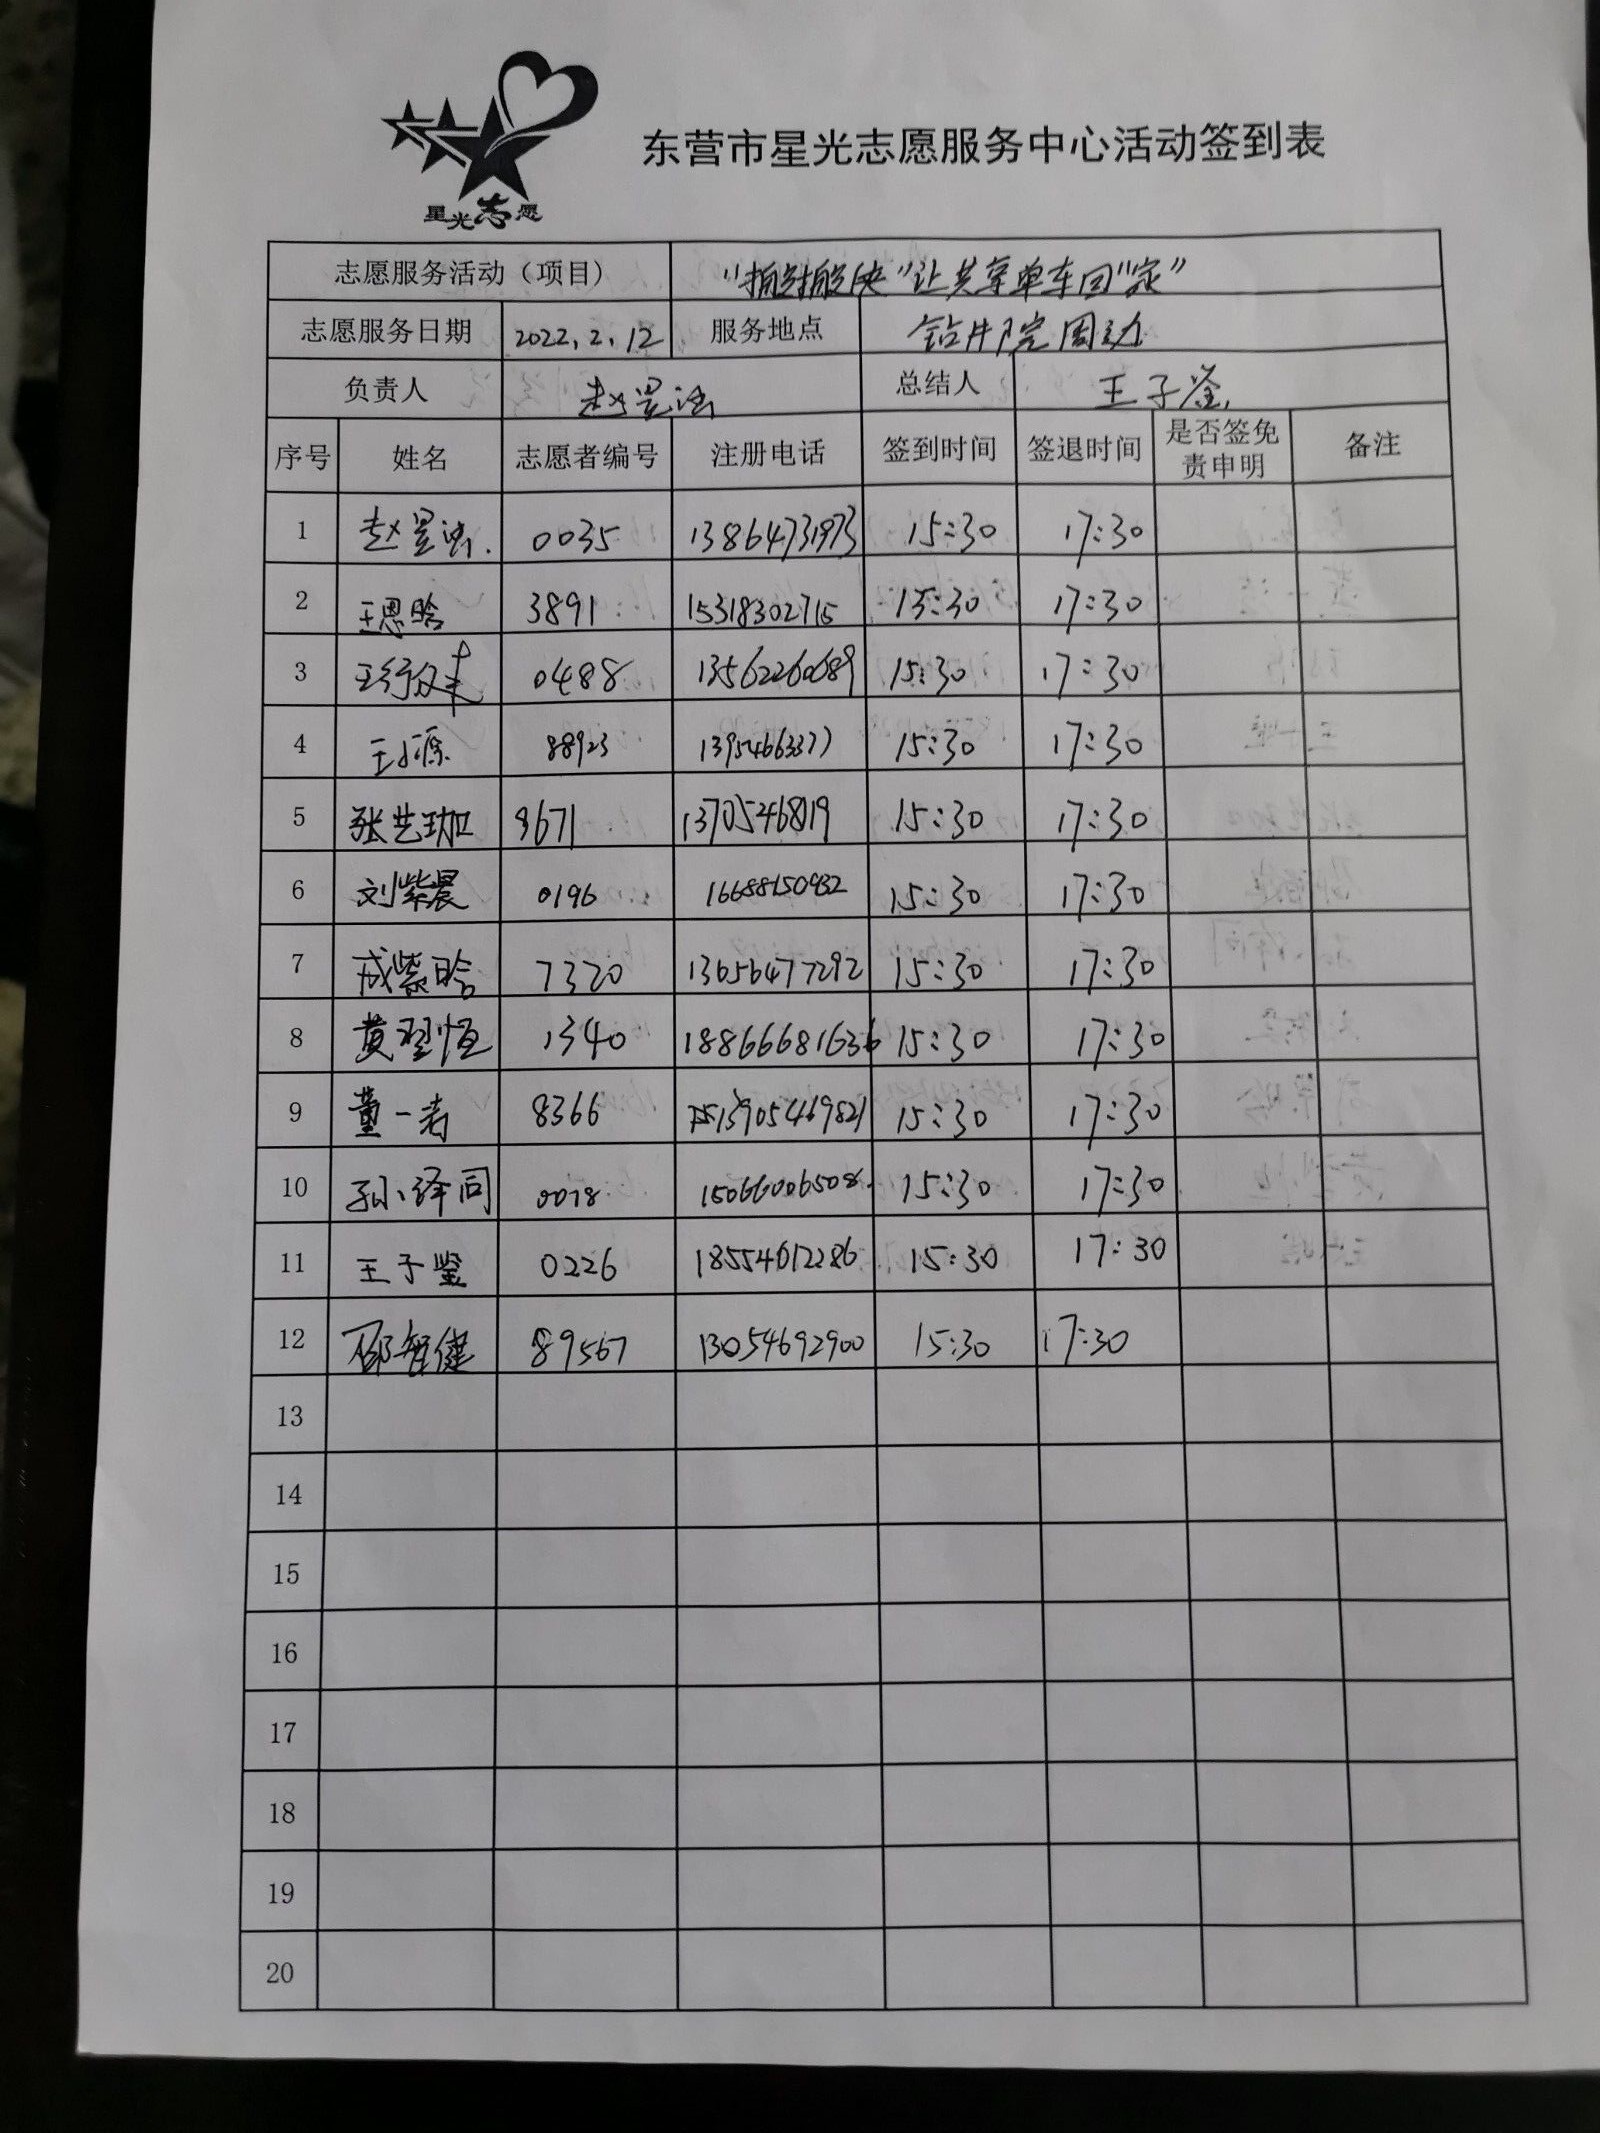 星光志愿
东营市星光志愿服务中心活动签到表
志愿服务活动（项目） "让共享单车回"家"
志愿服务日期 2022.2.12 服务地点 钻井院周边
负责人 赵昱涵 总结人 王子鉴
序号 姓名 志愿者编号 注册电话 签到时间 签退时间 是否签免责申明 备注
1 赵昱涵 0035 13864731973 15:30 17:30
2 王思晗 3891 15318302715 15:30 17:30
3 0488 13562260689 15:30 17:30
4 王小源 88923 13954663377 15:30 17:30
5 张艺珈 9671 1370546819 15:30 17:30
6 刘紫晨 0196 16688150932 15:30 17:30
7 成紫晗 7320 13656477292 15:30 17:30
8 黄翌恒 1340 18866681636 15:30 17:30
9 董一 8366 13905469821 15:30 17:30
10 孙泽同 0078 15066006508 15:30 17:30
11 王子鉴 0226 18554612286 15:30 17:30
12 邵智健 89567 13054692900 15:30 17:30
13
14
15
16
17
18
19
20